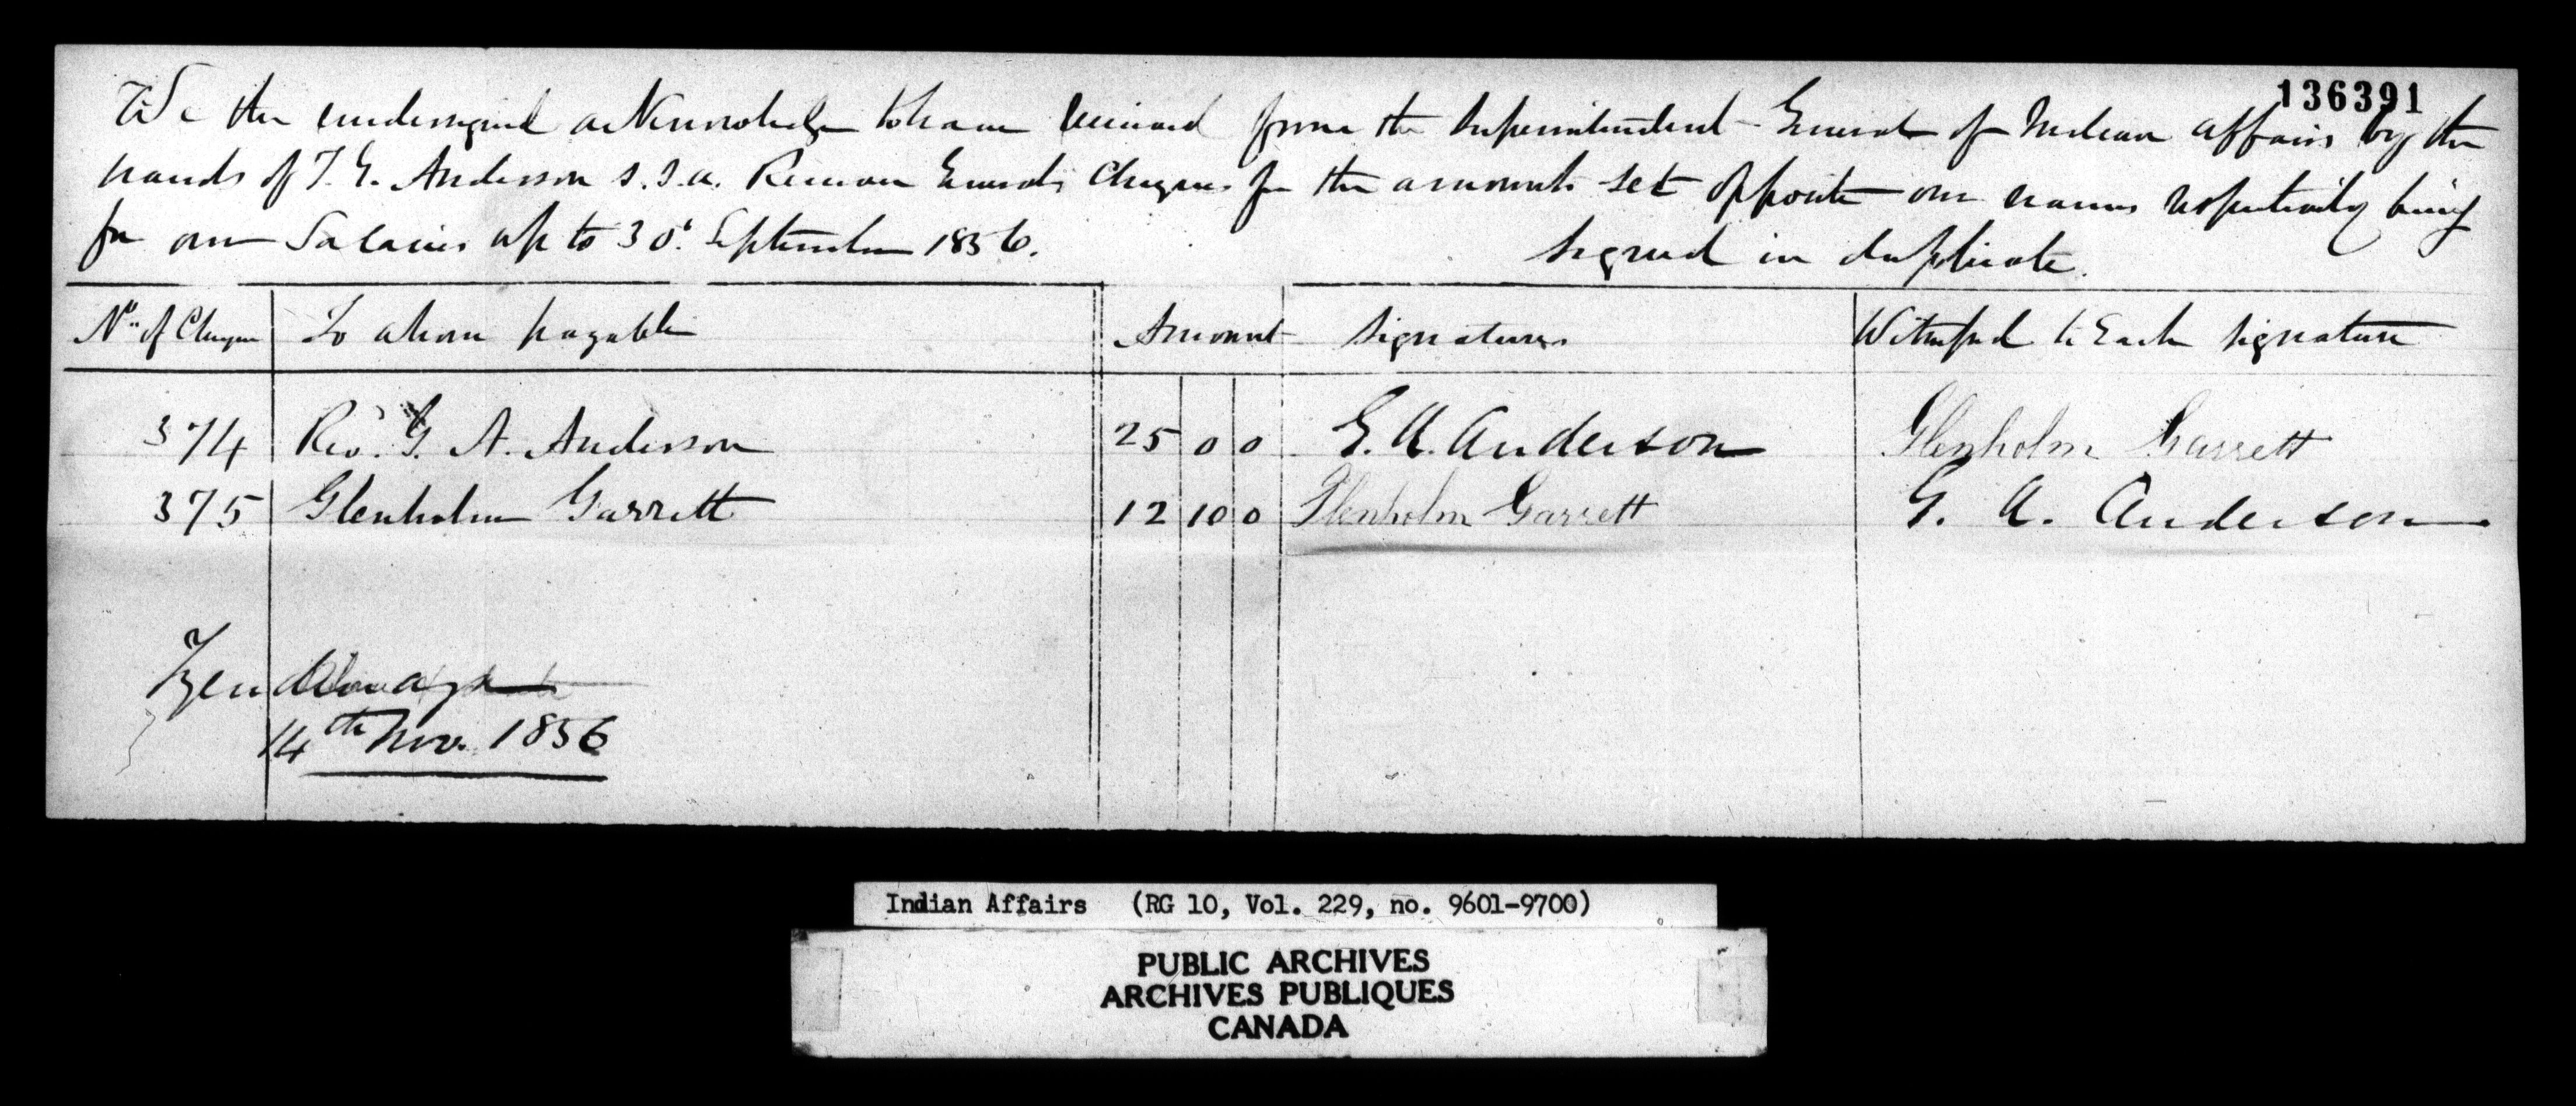 136391
We the undersigned acknowledge to have received from the Superintendent General of Indian Affairs by the
hands of T. G. Anderson S.I.A. Receiver Generals Cheques for the amounts set opposite our names respectively being
for our Salaries up to 30t September 1856. signed in duplicate.
No. of Cheque To whom payable Amount Signatures Witnessed to Each signature
374 Rev. G. A. Anderson 25 0 0 G. A. Anderson Glenholm Garrett
375 Glenholm Garrett 12 10 0 Glenholm Garrett G. A. Anderson
14th Nov. 1856
Indian Affairs (RG 10, Vol. 229, no. 9601-9700)
PUBLIC ARCHIVES
ARCHIVES PUBLIQUES
CANADA